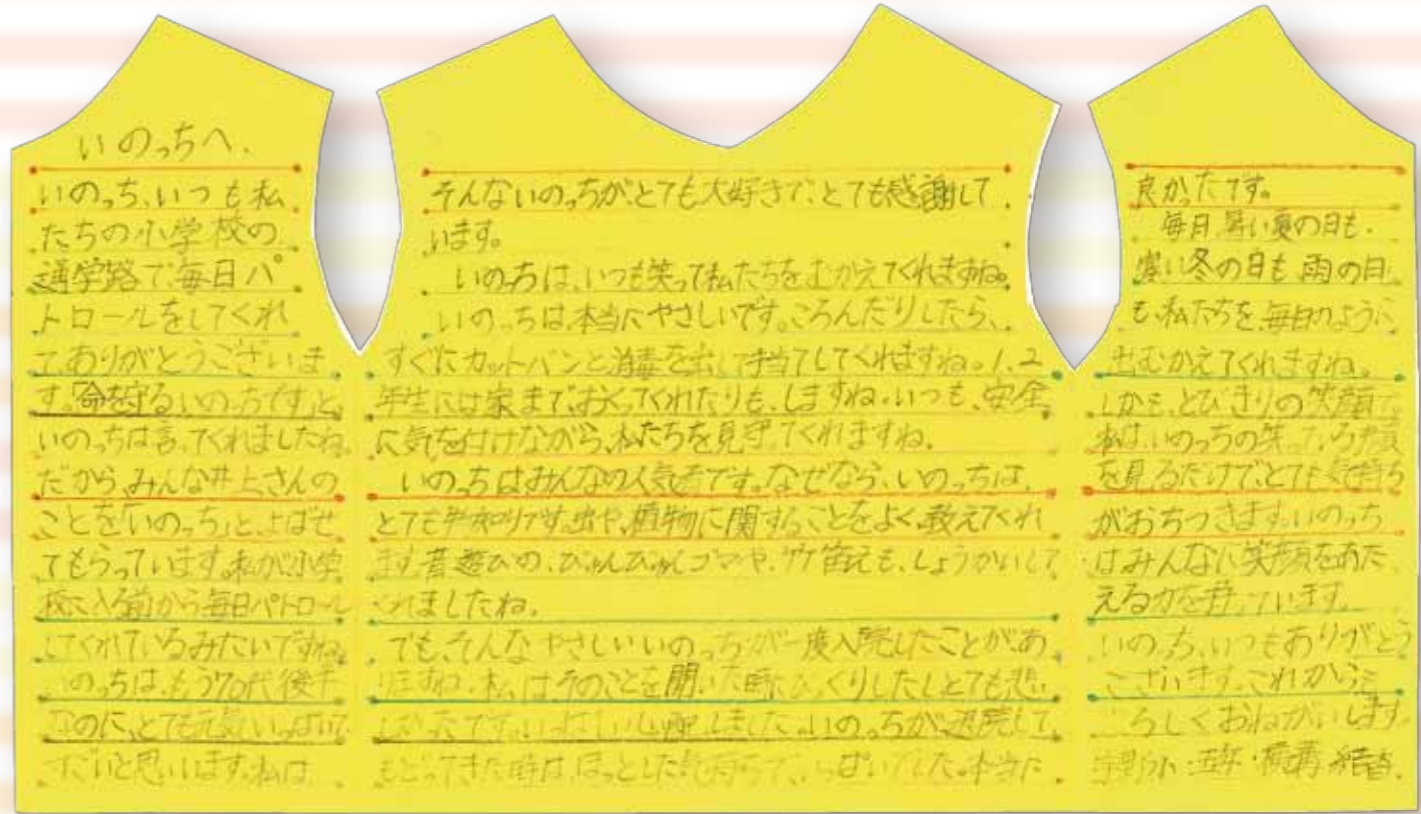 いのっちへ.
いのっち、いつも私
たちの小学校の
通学路で、毎日パ
トロールをしてくれ
てありがとうございま
す。「命を守るいのっちです」と、
いのっちは言ってくれましたね。
だから、みんな井上さんの
ことを「いのっち」と、よばせ
てもらっています。私が小学
校に入る前から毎日パトロール
してくれているみたいですね。
いのっちは、もう70代後半
なのに、とても元気いっぱいで
すごいと思います。私は、
そんないのっちが、とても大好きで、とても感謝して
います。
いのっちは、いつも笑って私たちをむかえてくれますね。
いのっちは、本当にやさしいです。ころんだりしたら、
すぐにカットバンと消毒を出して手当てしてくれますね。1、2
年生には家まで、おくってくれたりも、しますね。いつも、安全
に気を付けながら、私たちを見守ってくれますね。
いのっちはみんなの人気者です。なぜなら、いのっちは、
とても物知りです。虫や、植物に関することをよく、教えてくれ
ます。昔遊びの、びゅんびゅんゴマや、竹笛も、しょうかいして
くれましたね。
でも、そんなやさしいいのっちが一度入院したことが、あ
りますね。私はそのことを聞いた時びっくりしたしとても悲
しかったです。いっぱい心配しました。いのっちが退院して
もどってきた時は、ほっとした気持ちで、いっぱいでした。本当に
良かったです。
毎日、暑い夏の日も、
寒い冬の日も、雨の日
も、私たちを、毎日のように
出むかえてくれますね。
しかも、とびきりの笑顔で。
私は、いのっちの笑っている顔
を見るだけで、とても気持ち
がおちつきます。いのっち
はみんなに笑顔をあた
える力を持っています。
いのっち、いつもありがとう
ございます。これからも
よろしくおねがいします。